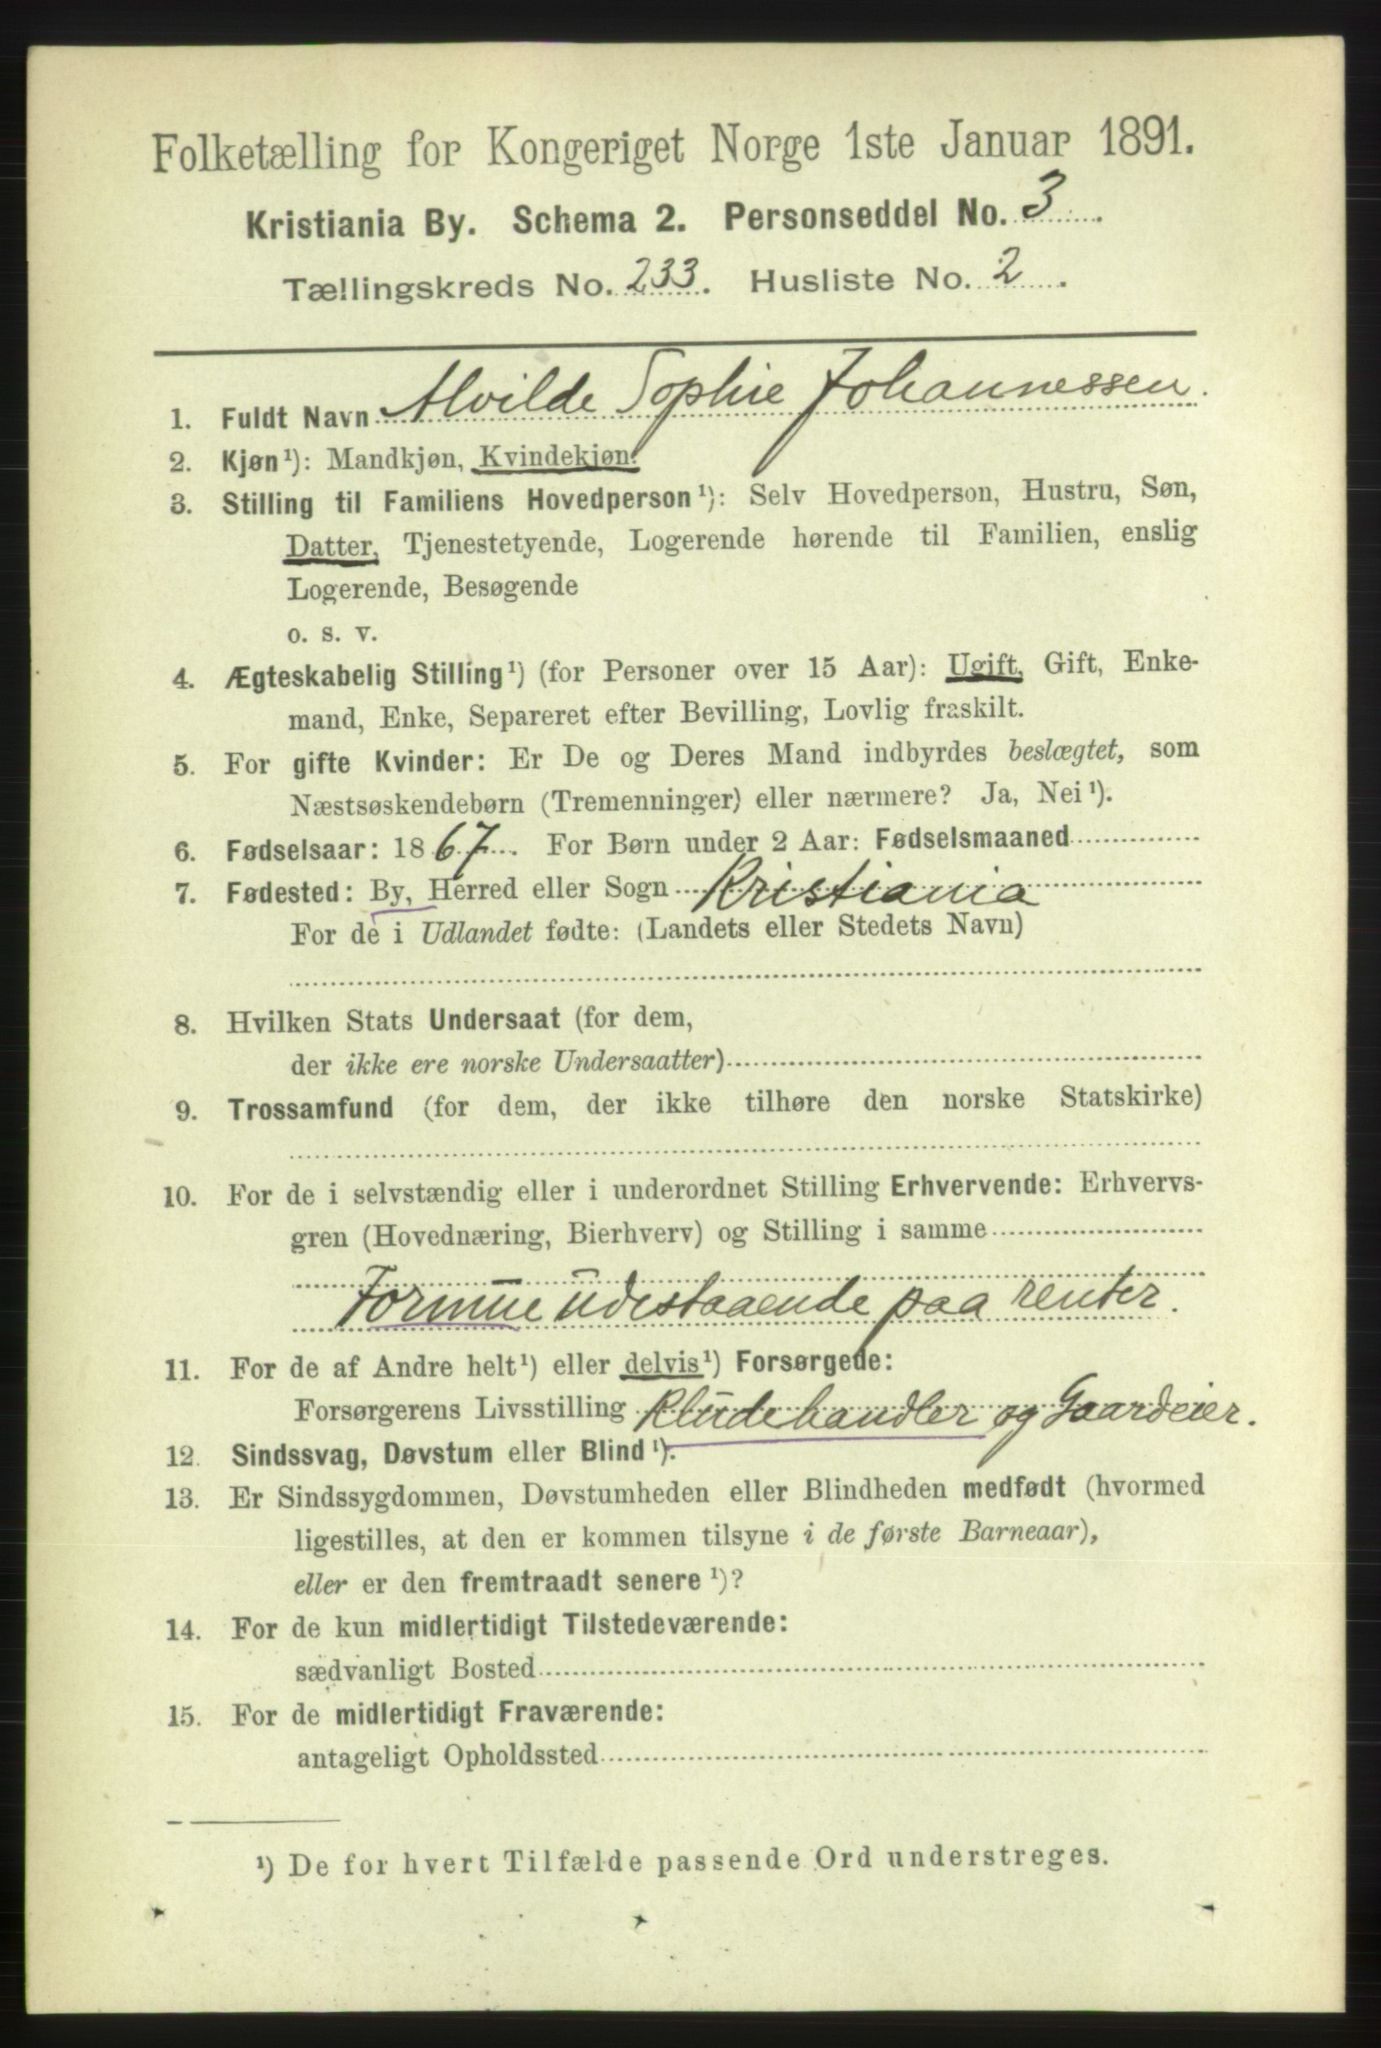 Folketælling for Kongeriget Norge 1ste Januar 1891.
Kristiania By. Schema 2. Personseddel No. 3.
Tællingskreds No. 233. Husliste No. 2.
1. Fuldt Navn Alvilde Sophie Johannessen.
2. Kjøn¹): Mandkjøn, Kvindekjøn.
3. Stilling til Familiens Hovedperson¹): Selv Hovedperson, Hustru, Søn,
Datter, Tjenestetyende, Logerende hørende til Familien, enslig
Logerende, Besøgende
o. s. v.
4. Ægteskabelig Stilling¹) (for Personer over 15 Aar): Ugift, Gift, Enke-
mand, Enke, Separeret efter Bevilling, Lovlig fraskilt.
5. For gifte Kvinder: Er De og Deres Mand indbyrdes beslægtet, som
Næstsøskendebørn (Tremenninger) eller nærmere? Ja, Nei¹).
6. Fødselsaar: 1867. For Børn under 2 Aar: Fødselsmaaned
7. Fødested: By, Herred eller Sogn Kristiania
For de i Udlandet fødte: (Landets eller Stedets Navn)
8. Hvilken Stats Undersaat (for dem,
der ikke ere norske Undersaatter)
9. Trossamfund (for dem, der ikke tilhøre den norske Statskirke)
10. For de i selvstændig eller i underordnet Stilling Erhvervende: Erhvervs-
gren (Hovednæring, Bierhverv) og Stilling i samme
Formue udestaaende paa renter.
11. For de af Andre helt¹) eller delvis¹) Forsørgede:
Forsørgerens Livsstilling Kludehandler og Gaardeier.
12. Sindssvag, Døvstum eller Blind¹).
13. Er Sindssygdommen, Døvstumheden eller Blindheden medfødt (hvormed
ligestilles, at den er kommen tilsyne i de første Barneaar),
eller er den fremtraadt senere¹)?
14. For de kun midlertidigt Tilstedeværende:
sædvanligt Bosted
15. For de midlertidigt Fraværende:
antageligt Opholdssted
¹) De for hvert Tilfælde passende Ord understreges.